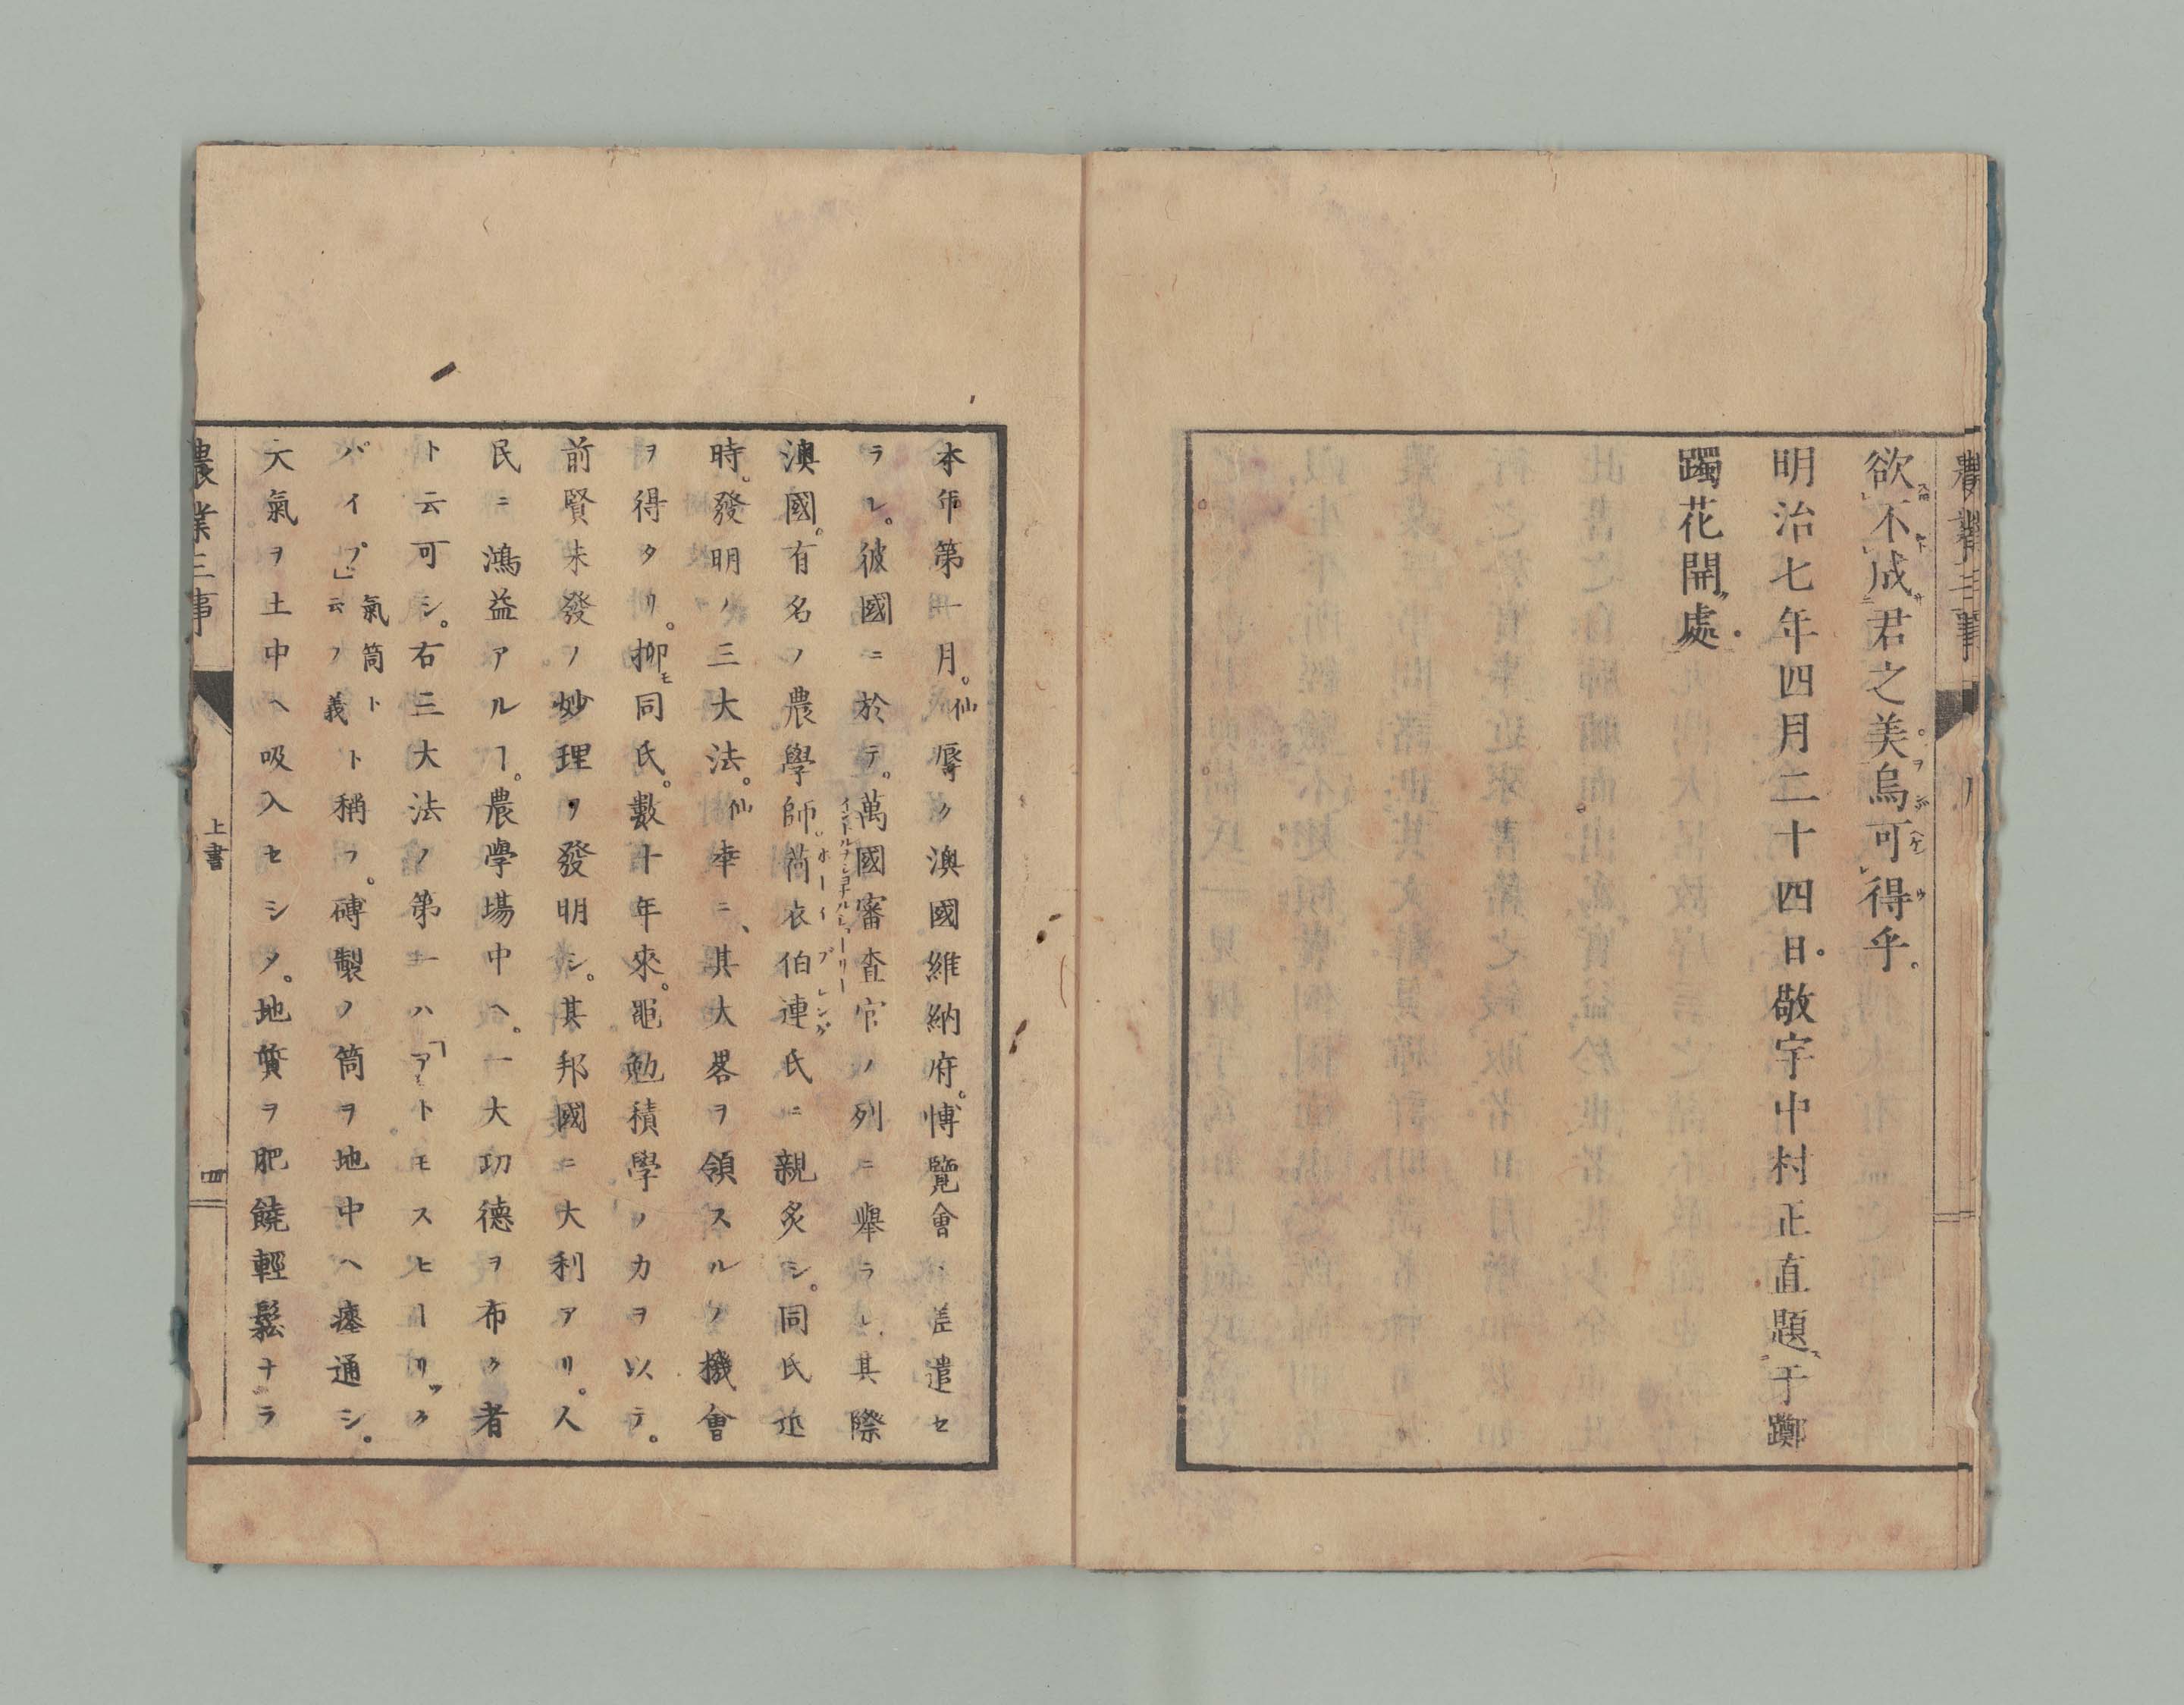 農業三事
欲不成君之美烏可得乎。
明治七年四月二十四日。敬宇中村正直題于躑
躅花開處。
本年第一月。仙辱ク澳國維納府。博覽會ニ差遣セ
ラレ。彼國ニ於テ。萬國審査官ノ列ニ擧ラレ、其際
インドルナショナルジューリー
澳國。有名ノ農學師。荷衣伯連氏ニ親炙シ。同氏近
ホーイブレング
時。發明ノ三大法。仙幸ニ、其大畧ヲ領スルノ機會
ヲ得タリ。抑モ同氏。數十年來。黽勉積學ノ力ヲ以テ。
前賢未發ノ妙理ヲ發明シ。其邦國ニ大利アリ。人
民ニ鴻益アルヿ。農學場中ヘ。一大功德ヲ布ク者
ト云可シ。右三大法ノ第一ハ「アトモスヒーリック
パイプ」氣筒ト云ノ義ト稱フ。磚製ノ筒ヲ地中ヘ瘞通シ。
大氣ヲ土中ヘ吸入セシメ。地質ヲ肥饒輕鬆ナラ
農業三事
上書
四